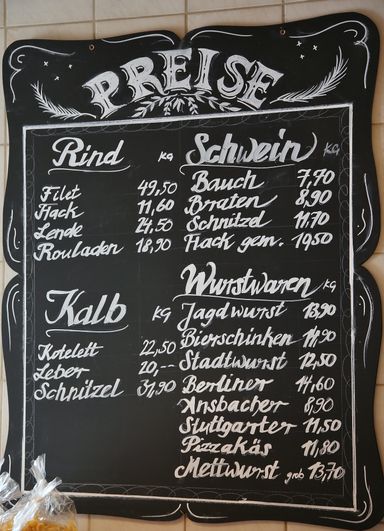 PREISE
Rind KG
Filet 49,50
Hack 11,60
Lende 24.50
Rouladen 18,90
Kalb KG
Kotelett 22,50
Leber 20,--
Schnitzel 31,90
Schwein KG
Bauch 7,70
Braten 8,90
Schnitzel 11,70
Hack gem. 10,50
Wurstwaren KG
Jagdwurst 13,90
Bierschinken 14,90
Stadtwurst 12,50
Berliner 14,60
Ansbacher 8,90
Stuttgarter 11,50
Pizzakäs 11,80
Mettwurst grob 13,70